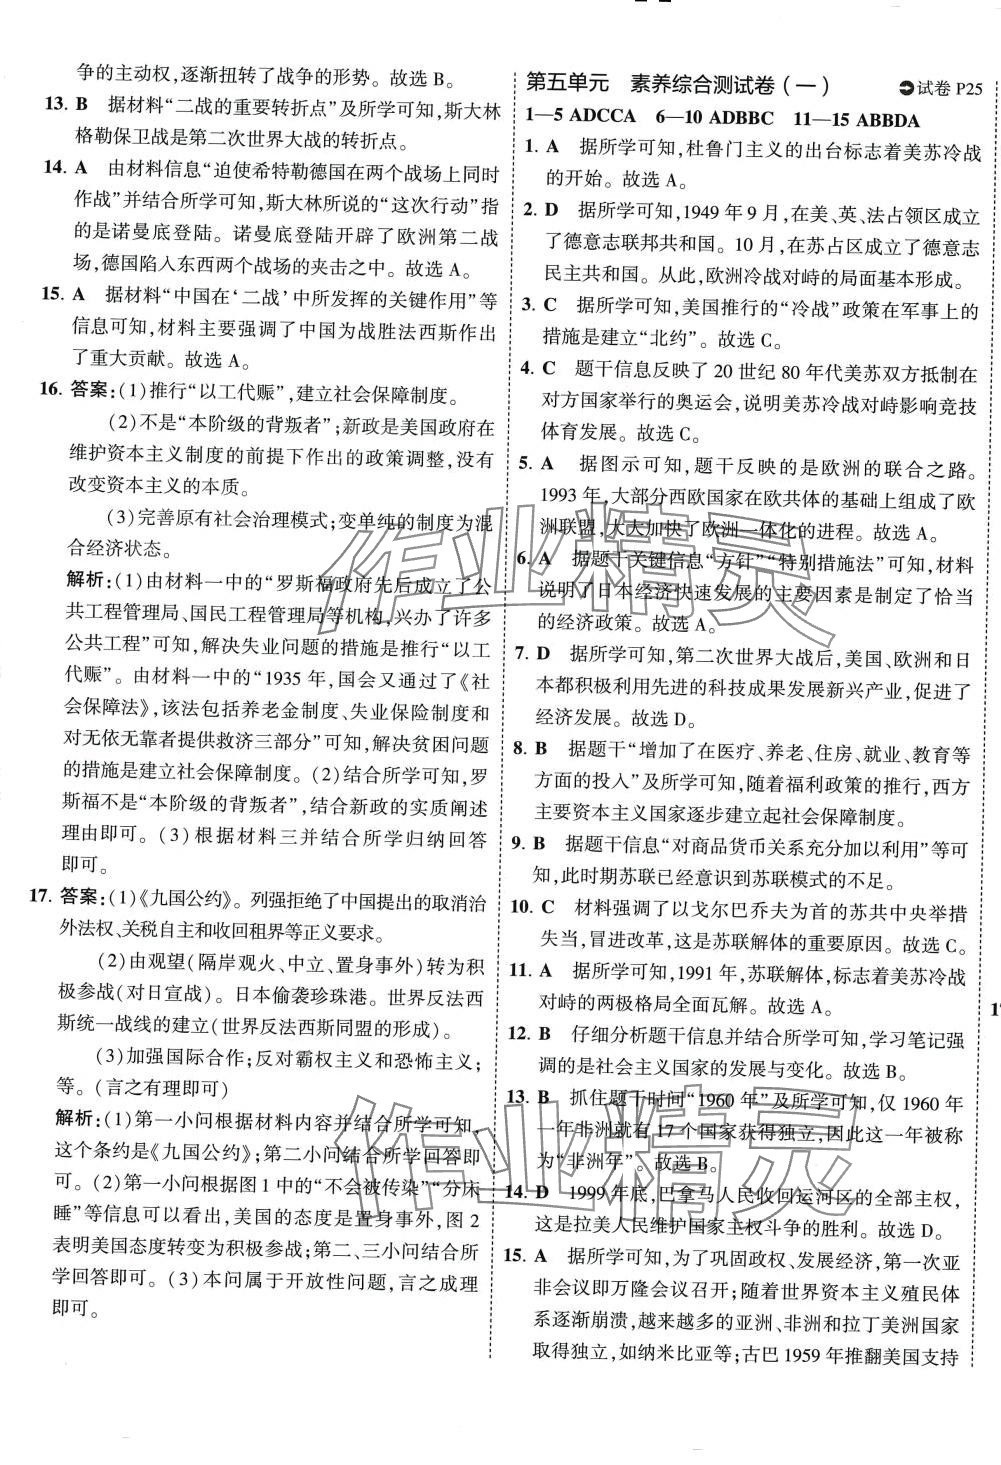 争的主动权,逐渐扭转了战争的形势。故选 B。
13. B 据材料“二战的重要转折点”及所学可知,斯大林
格勒保卫战是第二次世界大战的转折点。
14. A 由材料信息“迫使希特勒德国在两个战场上同时
作战”并结合所学可知,斯大林所说的“这次行动”指
的是诺曼底登陆。诺曼底登陆开辟了欧洲第二战
场,德国陷入东西两个战场的夹击之中。故选 A。
15. A 据材料“中国在‘二战’中所发挥的关键作用”等
信息可知,材料主要强调了中国为战胜法西斯作出
了重大贡献。故选 A。
16. 答案:(1)推行“以工代赈”,建立社会保障制度。
(2)不是“本阶级的背叛者”;新政是美国政府在
维护资本主义制度的前提下作出的政策调整,没有
改变资本主义的本质。
(3)完善原有社会治理模式;变单纯的制度为混
合经济状态。
解析:(1)由材料一中的“罗斯福政府先后成立了公
共工程管理局、国民工程管理局等机构,兴办了许多
公共工程”可知,解决失业问题的措施是推行“以工
代赈”。由材料一中的“1935 年,国会又通过了《社
会保障法》,该法包括养老金制度、失业保险制度和
对无依无靠者提供救济三部分”可知,解决贫困问题
的措施是建立社会保障制度。(2)结合所学可知,罗
斯福不是“本阶级的背叛者”,结合新政的实质阐述
理由即可。(3)根据材料三并结合所学归纳回答
即可。
17. 答案:(1)《九国公约》。列强拒绝了中国提出的取消治
外法权、关税自主和收回租界等正义要求。
(2)由观望(隔岸观火、中立、置身事外)转为积
极参战(对日宣战)。日本偷袭珍珠港。世界反法西
斯统一战线的建立(世界反法西斯同盟的形成)。
(3)加强国际合作;反对霸权主义和恐怖主义;
等。(言之有理即可)
解析:(1)第一小问根据材料内容并结合所学可知,
这个条约是《九国公约》;第二小问结合所学回答即
可。(2)第一小问根据图 1 中的“不会被传染”“分床
睡”等信息可以看出,美国的态度是置身事外,图 2
表明美国态度转变为积极参战;第二、三小问结合所
学回答即可。(3)本问属于开放性问题,言之成理
即可。
第五单元 素养综合测试卷(一) 试卷 P25
1—5 ADCCA 6—10 ADBBC 11—15 ABBDA
1. A 据所学可知,杜鲁门主义的出台标志着美苏冷战
的开始。故选 A。
2. D 据所学可知,1949 年 9 月,在美、英、法占领区成立
了德意志联邦共和国。10 月,在苏占区成立了德意志
民主共和国。从此,欧洲冷战对峙的局面基本形成。
3. C 据所学可知,美国推行的“冷战”政策在军事上的
措施是建立“北约”。故选 C。
4. C 题干信息反映了 20 世纪 80 年代美苏双方抵制在
对方国家举行的奥运会,说明美苏冷战对峙影响竞技
体育发展。故选 C。
5. A 据图示可知,题干反映的是欧洲的联合之路。
1993 年,大部分西欧国家在欧共体的基础上组成了欧
洲联盟,大大加快了欧洲一体化的进程。故选 A。
6. A 据题干关键信息“方针”“特别措施法”可知,材料
说明了日本经济快速发展的主要因素是制定了恰当
的经济政策。故选 A。
7. D 据所学可知,第二次世界大战后,美国、欧洲和日
本都积极利用先进的科技成果发展新兴产业,促进了
经济发展。故选 D。
8. B 据题干“增加了在医疗、养老、住房、就业、教育等
方面的投入”及所学可知,随着福利政策的推行,西方
主要资本主义国家逐步建立起社会保障制度。
9. B 据题干信息“对商品货币关系充分加以利用”等可
知,此时期苏联已经意识到苏联模式的不足。
10. C 材料强调了以戈尔巴乔夫为首的苏共中央举措
失当,冒进改革,这是苏联解体的重要原因。故选 C。
11. A 据所学可知,1991 年,苏联解体,标志着美苏冷战
对峙的两极格局全面瓦解。故选 A。
12. B 仔细分析题干信息并结合所学可知,学习笔记强
调的是社会主义国家的发展与变化。故选 B。
13. B 抓住题干时间“1960 年”及所学可知,仅 1960 年
一年非洲就有 17 个国家获得独立,因此这一年被称
为“非洲年”。故选 B。
14. D 1999 年底,巴拿马人民收回运河区的全部主权,
这是拉美人民维护国家主权斗争的胜利。故选 D。
15. A 据所学可知,为了巩固政权、发展经济,第一次亚
非会议即万隆会议召开;随着世界资本主义殖民体
系逐渐崩溃,越来越多的亚洲、非洲和拉丁美洲国家
取得独立,如纳米比亚等;古巴 1959 年推翻美国支持
作业精灵
作业精灵